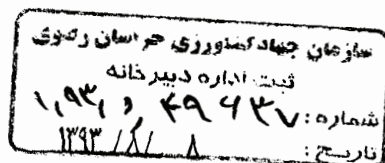 سازمان جهاد کشاورزی خراسان رضوی
ثبت اداره دبیرخانه
شماره: ۱٫۹۳٫ د ۴۹۶۳۷
تاریخ: ۱۳۹۳/۸/۸